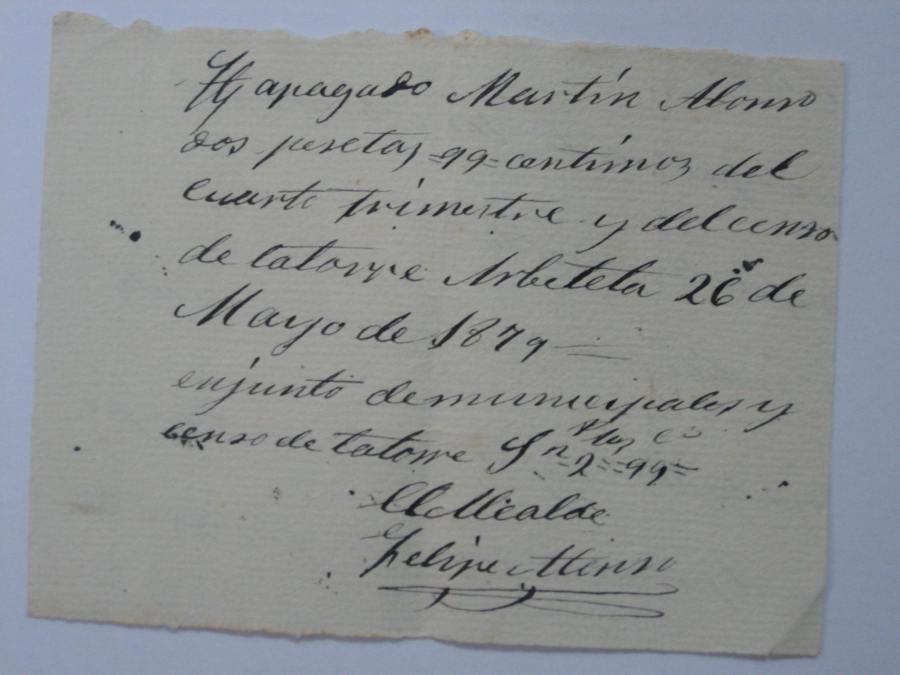 Ha pagado Martín Alonso
dos pesetas =99= centimos del
cuarto trimestre y del censo
de latorre Arbeteta 26 de
Mayo de 1879
enjunto demunicipales y
censo de latorre Sn ptas cs =2==99=
El Alcalde
Felipe Alonso